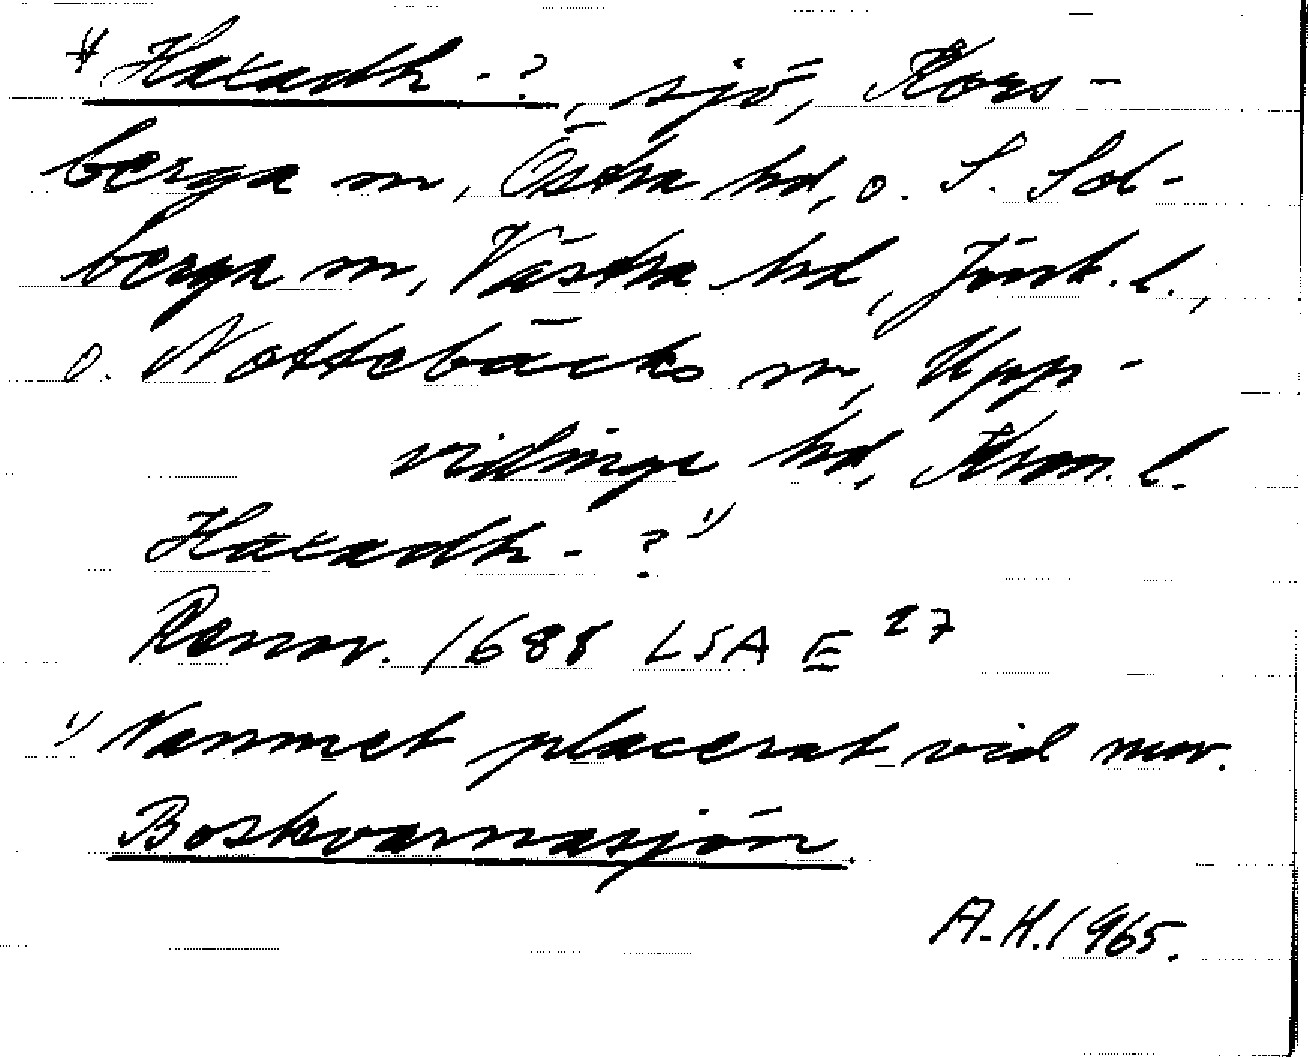 * Haxadh - ?, sjö, Kors-
berga sn, Östra hd, o. S. Sol-
berga sn, Västra hd, Jönk. l.,
o. Nottebäcks sn, Upp-
vidinge hd, Kron. l.
Haxadh - ? 1)
Rannr. 1688 LSA E 27
1) Namnet placerat vid nuv.
Boskvarnasjön.
A.H. 1965.